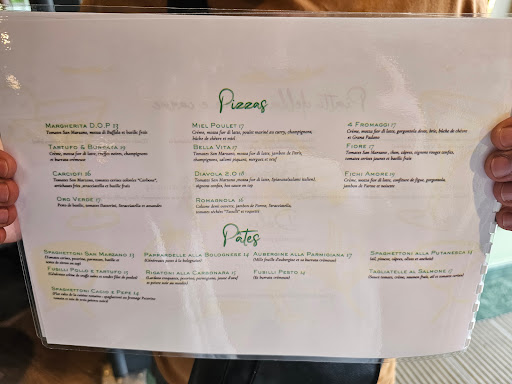 Pizzas
MARGHERITA D.O.P 13
Tomates San Marzano, mozza di Buffala et basilic frais
TARTUFO & BURRATA 19
Crème, mozza fior di latte, truffes noires, champignons
et burrata crémeuse
CARCIOFI 16
Tomates San Marzano, tomates cerises colorées "Carbone",
artichauts frits, stracciatella et basilic frais
ORO VERDE 17
Pesto de basilic, tomates fraiches, Stracciatella et amandes
MIEL POULET 17
Crème, mozza fior di latte, poulet mariné au curry, champignons,
bûche de chèvre et miel
BELLA VITA 17
Tomates San Marzano, mozza fior di latte, jambon de Paris,
champignons, salami piquant, merguez et oeuf
DIAVOLA 2.0 18
Tomates San Marzano, mozza fior di latte, Spianata(salami italien),
oignons confits, hot sauce on top
ROMAGNOLA 16
Calzone demi ouverte, jambon de Parme, Stracciatella,
tomates séchées et roquette
4 FROMAGGI 17
Crème, mozza fior di latte, gorgonzola doux, brie, bûche de chèvre
et Grana Padano
FIORE 17
Tomates San Marzano, thon, câpres, oignons rouges confits,
tomates cerises jaunes et basilic frais
FICHI AMORE 19
Crème, mozza fior di latte, confiture de figue, gorgonzola,
jambon de Parme et noisette
Pates
SPAGHETTONI SAN MARZANO 13
FUSILLI POLLO E TARTUFO 15
SPAGHETTONI CACIO E PEPE 14
PAPPARDELLE ALLA BOLOGNESE 14
(Généreuses, pates à la bolognaise)
RIGATONI ALLA CARBONARA 15
AUBERGINE ALLA PARMIGIANA 17
(Mille feuille d'aubergine et sa burrata crémeuse)
FUSILLI PESTO 14
(& burrata crémeuse)
SPAGHETTONI ALLA PUTANESCA 14
(ail, piment, câpres, olives et anchois)
TAGLIATELLE AL SALMONE 17